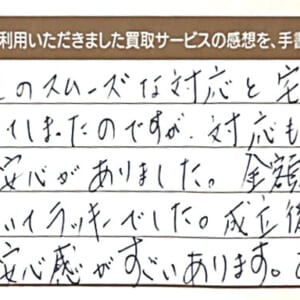 利用いただきました買取サービスの感想を、手書
のスムーズな対応と宅
しまったのですが、対応も
安心がありました。金額
ラッキーでした。成立後
安心感がすごいあります。